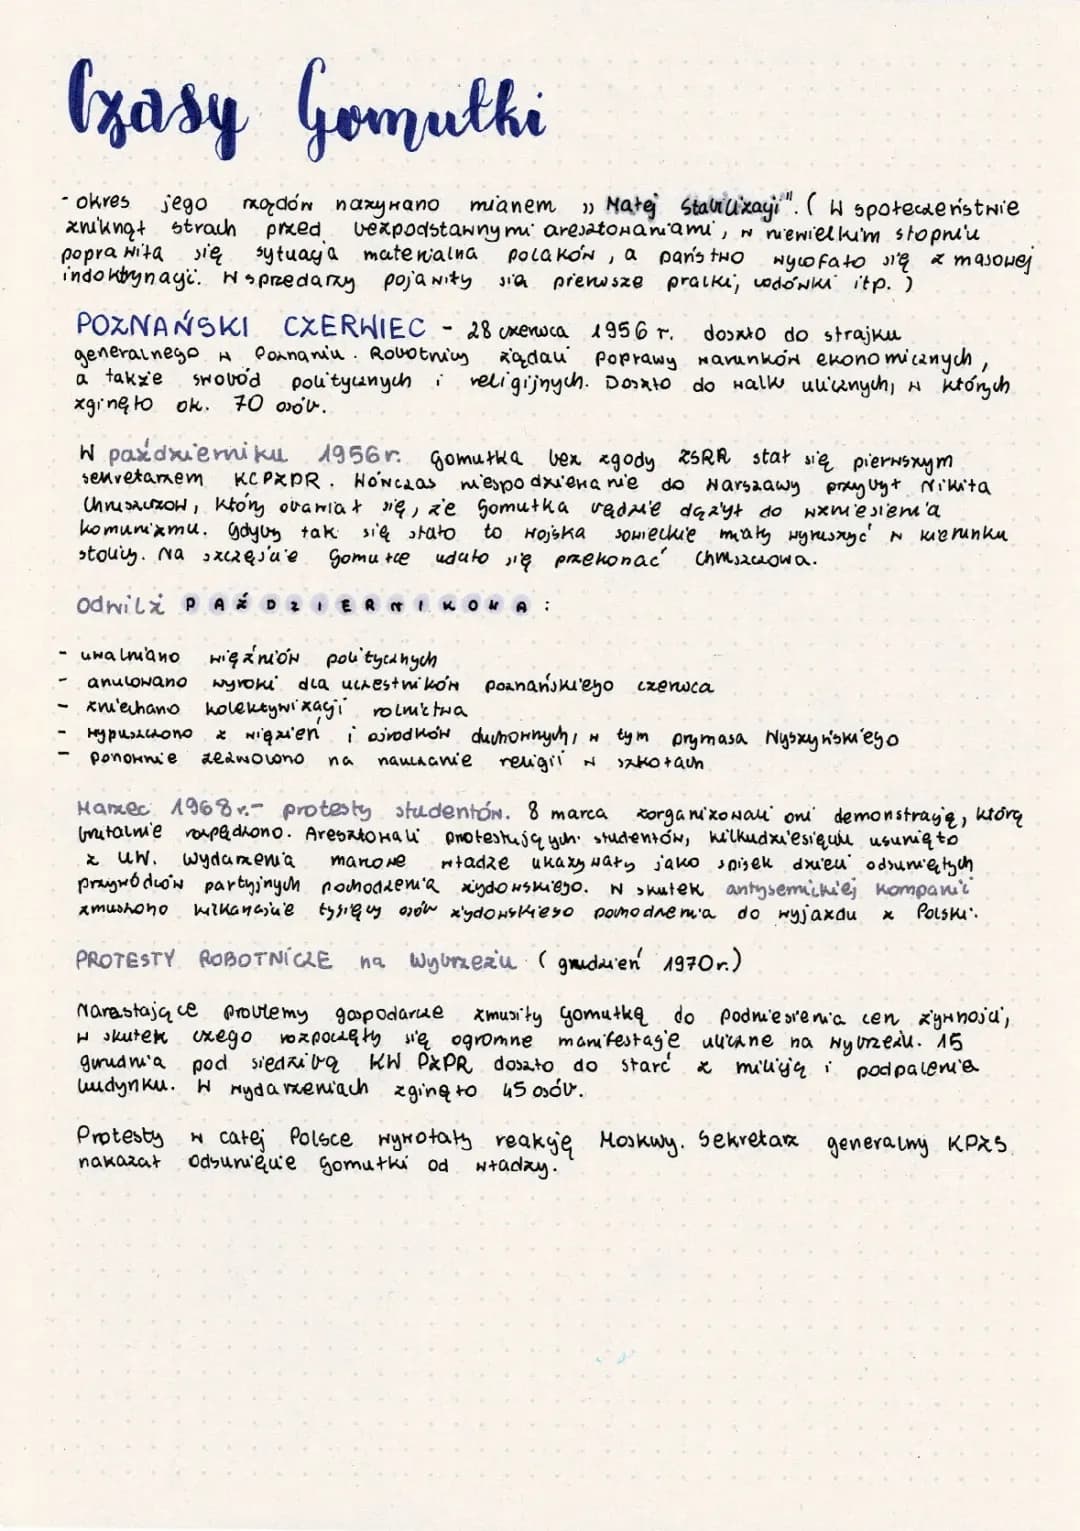 Czasy Gomułki
- okres jego rządów nazywano mianem „Małej Stabilizacji". ( W społeczeństwie
zniknął strach przed bezpodstawnymi aresztowaniami, w niewielkim stopniu
poprawiła się sytuacja materialna polaków, a państwo wycofało się z masowej
indoktrynacji. W sprzedarzy pojawiły się pierwsze pralki, lodówki itp. )
POZNAŃSKI CZERWIEC - 28 czerwca 1956 r. doszło do strajku
generalnego w Poznaniu. Robotnicy żądali poprawy warunków ekonomicznych,
a także swobód politycznych i religijnych. Doszło do walk ulicznych, w których
zginęło ok. 70 osób.
W październiku 1956r. Gomułka bez zgody ZSRR stał się pierwszym
sekretarzem KCPZPR. Wówczas niespodziewanie do Warszawy przybył Nikita
Chruszczow, który obawiał się, że Gomułka będzie dążył do wzniesienia
komunizmu. Gdyby tak się stało to wojska sowieckie miały wyruszyć w kierunku
stolicy. Na szczęście Gomułce udało się przekonać Chruszczowa.
Odwilż PAŹDZIERNIKOWA :
- uwalniano więźniów politycznych
- anulowano wyroki dla uczestników poznańskiego czerwca
- zniechano kolektywizacji rolnictwa
- wypuszczono z więzień i ośrodków duchownych, w tym prymasa Wyszyńskiego
- ponownie zezwolono na nauczanie religii w szkołach
Marzec 1968r.- protesty studentów. 8 marca zorganizowali oni demonstrację, którą
brutalnie rozpędzono. Aresztowali protestujących studentów, kilkudziesięciu usunięto
z UW. Wydarzenia marcowe władze ukazywały jako spisek dzieci odsuniętych
przywódców partyjnych pochodzenia żydowskiego. W skutek antysemickiej kompanii
zmuszono kilkanaście tysięcy osób żydowskiego pochodzenia do wyjazdu z Polski.
PROTESTY ROBOTNICZE na Wybrzeżu ( grudzień 1970r.)
Narastające problemy gospodarcze zmusiły Gomułkę do podniesienia cen żywności,
w skutek czego rozpoczęły się ogromne manifestacje uliczne na Wybrzeżu. 15
grudnia pod siedzibą KW PZPR doszło do starć z milicją i podpalenia
budynku. W wydarzeniach zginęło 45 osób.
Protesty w całej Polsce wywołały reakcję Moskwy. Sekretarz generalny KPZS
nakazał odsunięcie Gomułki od władzy.